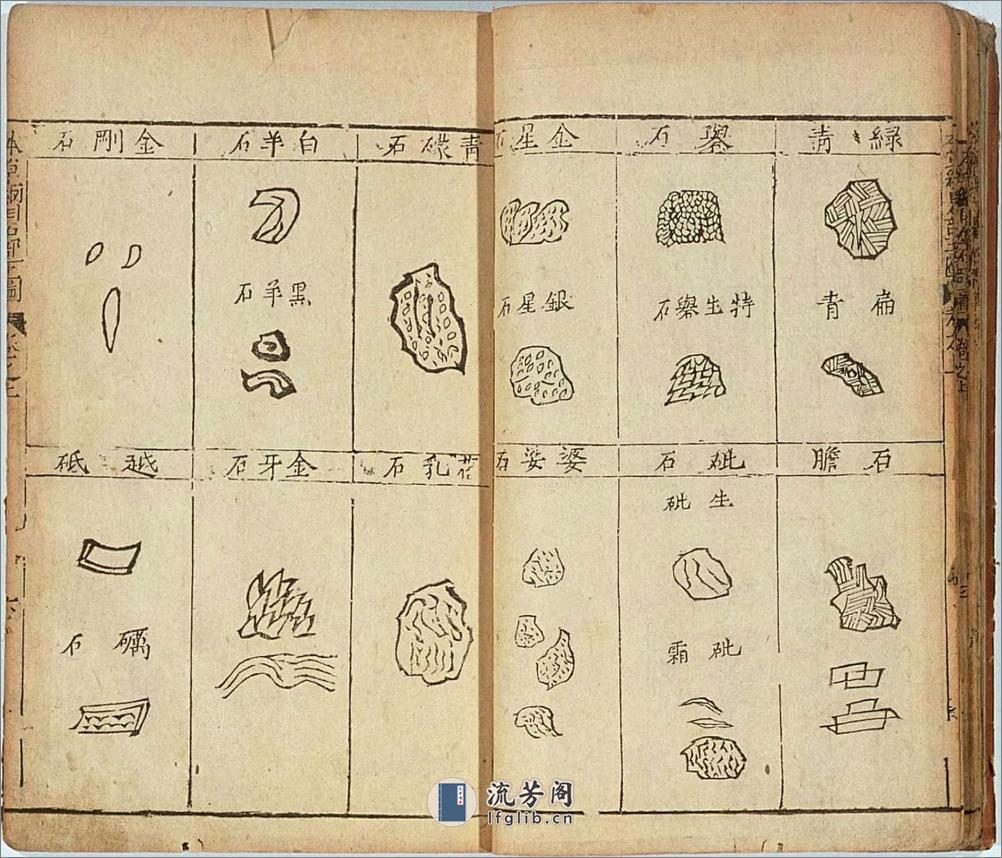 綠青
扁青
礜石
特生礜石
金星石
銀星石
石膽
砒石
生砒
砒霜
婆娑石
青礞石
白羊石
黑羊石
金剛石
花乳石
金牙石
越砥
礪石
本草綱目石部下圖
卷之上
流芳阁
lfglib.cn